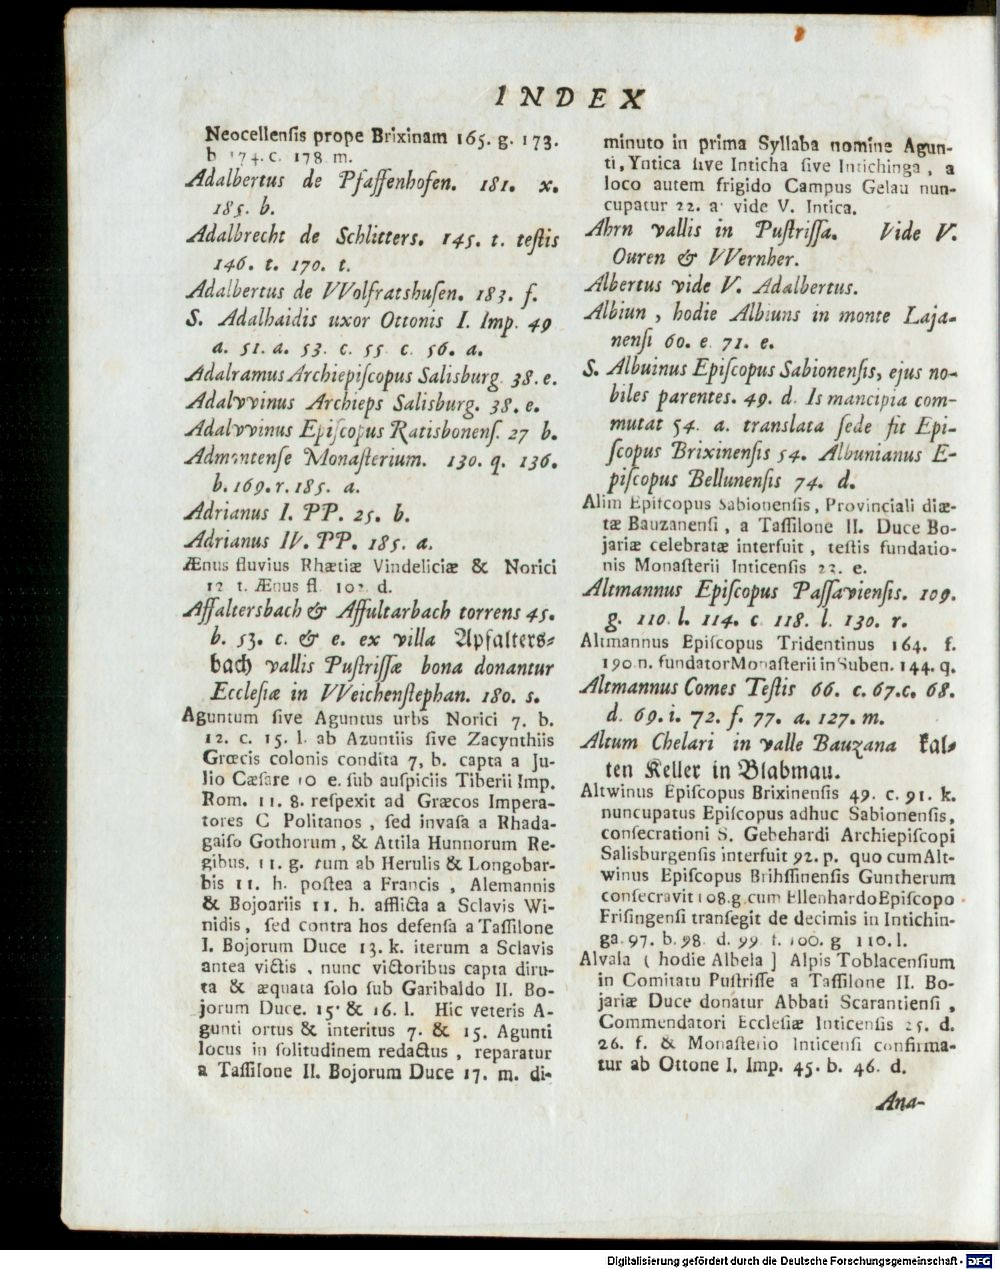 INDEX
Neocellenſis prope Brixinam 165. g. 173.
b 174. c. 178 m.
Adalbertus de Pfaffenhofen. 181. x.
185. b.
Adalbrecht de Schlitters. 145. t. teſtis
146. t. 170. t.
Adalbertus de VVolfratshuſen. 183. f.
S. Adalhaidis uxor Ottonis I. Imp. 49
a. 51. a. 53. c. 55 c. 56. a.
Adalramus Archiepiſcopus Salisburg. 38. e.
Adalvvinus Archieps Salisburg. 38. e.
Adalvvinus Epiſcopus Ratisbonenſ. 27 b.
Admontenſe Monaſterium. 130. q. 136.
b. 169. r. 185. a.
Adrianus I. PP. 25. b.
Adrianus IV. PP. 185. a.
Ænus fluvius Rhætiæ Vindeliciæ & Norici
12 t. Ænus fl. 102. d.
Affaltersbach & Affultarbach torrens 45.
b. 53. c. & e. ex villa Apfalters-
bach vallis Puſtriſſæ bona donantur
Eccleſiæ in VVeichenſtephan. 180. s.
Aguntum ſive Aguntus urbs Norici 7. b.
12. c. 15. l. ab Azuntiis ſive Zacynthiis
Græcis colonis condita 7, b. capta a Ju-
lio Cæſare 10 e. ſub auſpiciis Tiberii Imp.
Rom. 11. 8. reſpexit ad Græcos Impera-
tores C Politanos, ſed invaſa a Rhada-
gaiſo Gothorum, & Attila Hunnorum Re-
gibus. 11. g. tum ab Herulis & Longobar-
bis 11. h. poſtea a Francis, Alemannis
& Bojoariis 11. h. afflicta a Sclavis Wi-
nidis, ſed contra hos defenſa a Taſſilone
I. Bojorum Duce 13. k. iterum a Sclavis
antea victis, nunc victoribus capta diru-
ta & æquata ſolo ſub Garibaldo II. Bo-
jorum Duce. 15. & 16. l. Hic veteris A-
gunti ortus & interitus 7. & 15. Agunti
locus in ſolitudinem redactus, reparatur
a Taſſilone II. Bojorum Duce 17. m. di-
minuto in prima Syllaba nomine Agun-
ti, Yntica ſive Inticha ſive Intichinga, a
loco autem frigido Campus Gelau nun-
cupatur 22. a vide V. Intica.
Ahrn vallis in Puſtriſſa. Vide V.
Ouren & VVernher.
Albertus vide V. Adalbertus.
Albiun, hodie Albiuns in monte Laja-
nenſi 60. e. 71. e.
S. Albuinus Epiſcopus Sabionenſis, ejus no-
biles parentes. 49. d. Is mancipia com-
mutat 54. a. translata ſede fit Epi-
ſcopus Brixinenſis 54. Albunianus E-
piſcopus Bellunenſis 74. d.
Alim Epiſcopus Sabionenſis, Provinciali diæ-
tæ Bauzanenſi, a Taſſilone II. Duce Bo-
jariæ celebratæ interfuit, teſtis fundatio-
nis Monaſterii Inticenſis 23. e.
Altmannus Epiſcopus Paſſavienſis. 109.
g. 110. l. 114. c 118. l. 130. r.
Altmannus Epiſcopus Tridentinus 164. f.
190 n. fundator Monaſterii in Suben. 144. q.
Altmannus Comes Teſtis 66. c. 67. c. 68.
d. 69. i. 72. f. 77. a. 127. m.
Altum Chelari in valle Bauzana kal-
ten Keller in Blabmau.
Altwinus Epiſcopus Brixinenſis 49. c. 91. k.
nuncupatus Epiſcopus adhuc Sabionenſis,
conſecrationi S. Gebehardi Archiepiſcopi
Salisburgenſis interfuit 92. p. quo cum Alt-
winus Epiſcopus Brihſſinenſis Guntherum
conſecravit 108. g. cum Ellenhardo Epiſcopo
Friſingenſi tranſegit de decimis in Intichin-
ga. 97. b. 98. d. 99 f. 100. g 110. l.
Alvala ( hodie Albela ] Alpis Toblacenſium
in Comitatu Puſtriſſe a Taſſilone II. Bo-
jariæ Duce donatur Abbati Scarantienſi,
Commendatori Eccleſiæ Inticenſis 25. d.
26. f. & Monaſterio Inticenſi confirma-
tur ab Ottone I. Imp. 45. b. 46. d.
Ana-
Digitalisierung gefördert durch die Deutsche Forschungsgemeinschaft - DFG